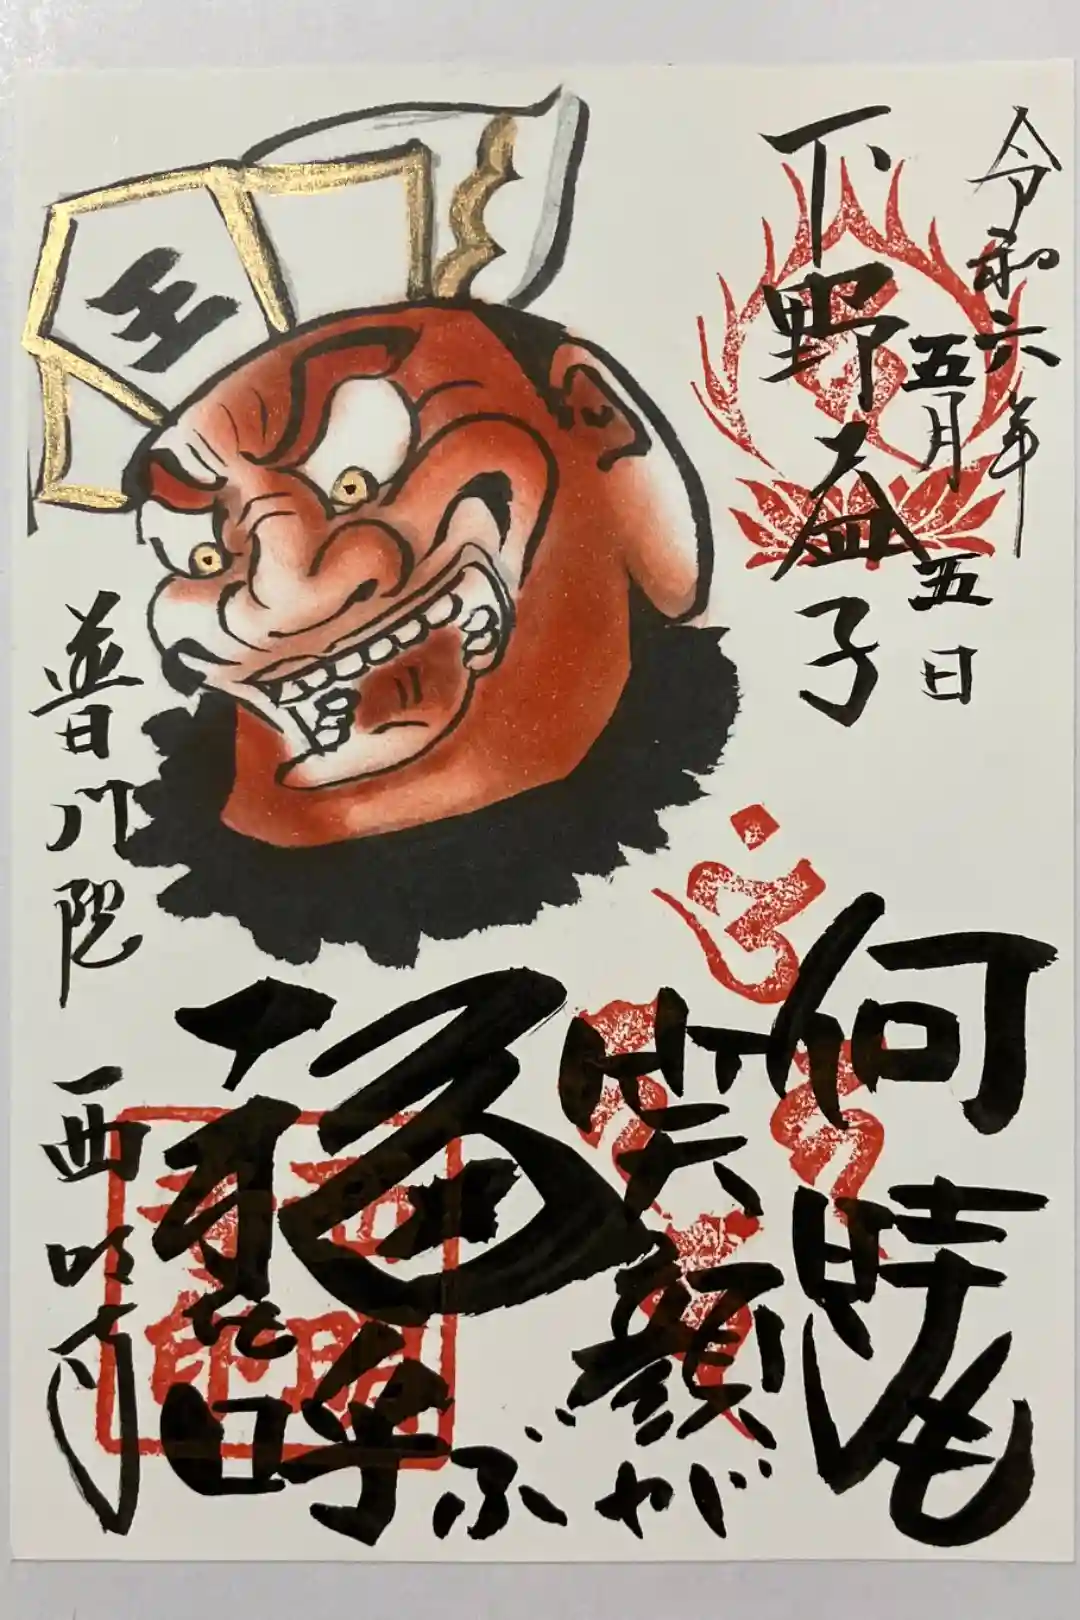 令和六年
五月五日
下野益子
何時も
笑顔が
福を呼ぶ
王
普門院
西明寺
西明寺印